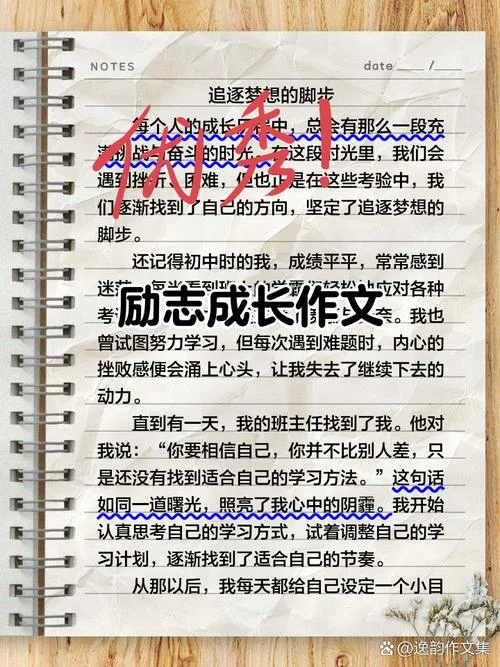 NOTES
date ____ / ____
追逐梦想的脚步
优秀!
每个人的成长历程中，总会有那么一段充
满挑战与奋斗的时光。在这段时光里，我们会
遇到挫折、困难，但也正是在这些考验中，我
们逐渐找到了自己的方向，坚定了追逐梦想的
脚步。
还记得初中时的我，成绩平平，常常感到
励志成长作文
。我也
曾试图努力学习，但每次遇到难题时，内心的
挫败感便会涌上心头，让我失去了继续下去的
动力。
直到有一天，我的班主任找到了我。他对
我说：“你要相信自己，你并不比别人差，只
是还没有找到适合自己的学习方法。”这句话
如同一道曙光，照亮了我心中的阴霾。我开始
认真思考自己的学习方式，试着调整自己的学
习计划，逐渐找到了适合自己的节奏。
从那以后，我每天都给自己设定一个小目
@逸韵作文集